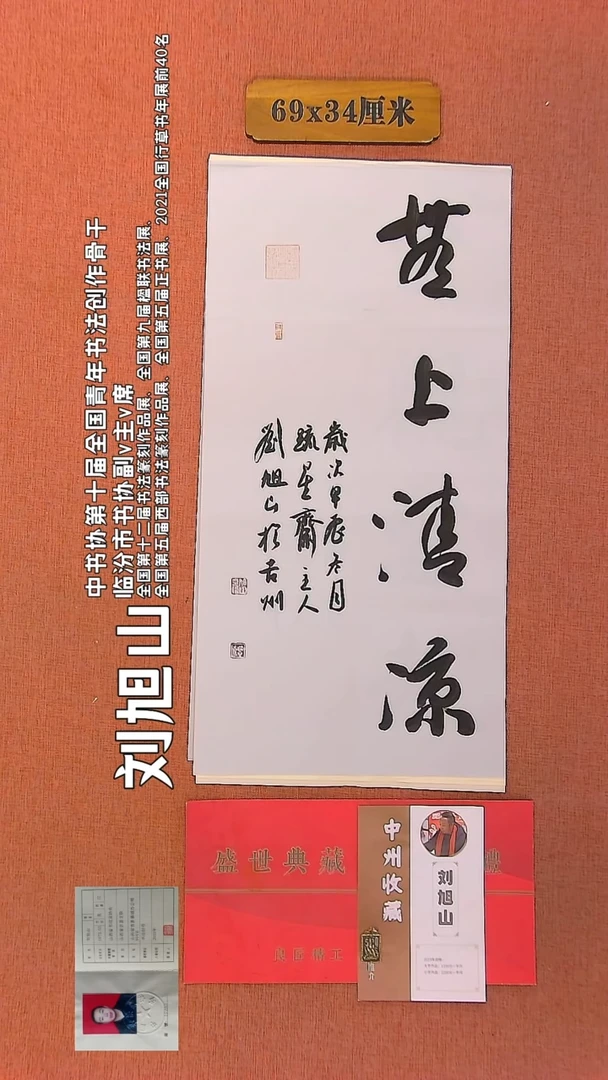 69x34厘米
無上清凉
歲次甲辰冬月
疏星齋主人
劉旭山於吉州
刘旭山
中书协第十届全国青年书法创作骨干
临汾市书协副v主v席
全国第十二届书法篆刻作品展、全国第九届楹联书法展、
全国第五届西部书法篆刻作品展、全国第五届正书展、2021全国行草书年展前40名
盛世典藏
中州收藏
刘旭山